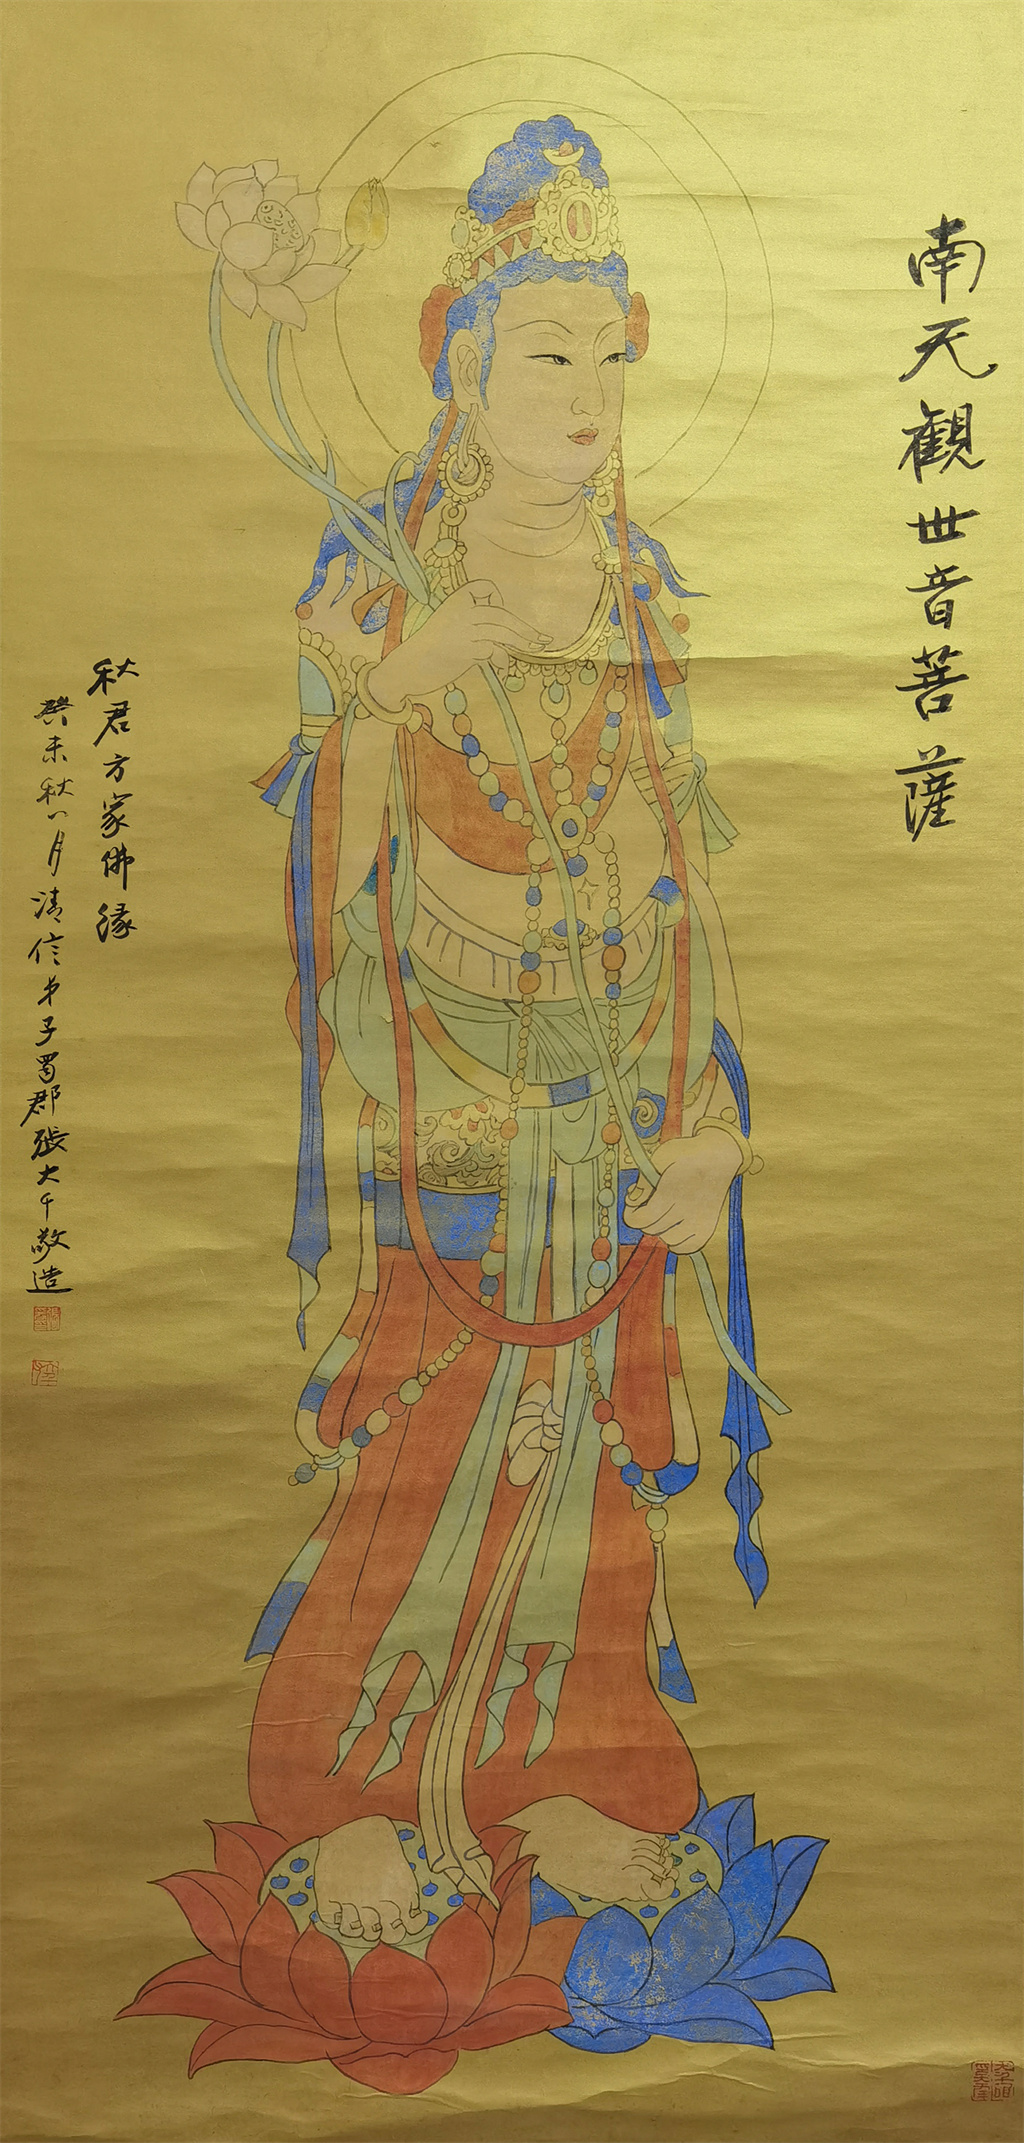 南天觀世音菩薩
秋君方家佛緣
癸未秋八月清信弟子蜀郡張大千敬造